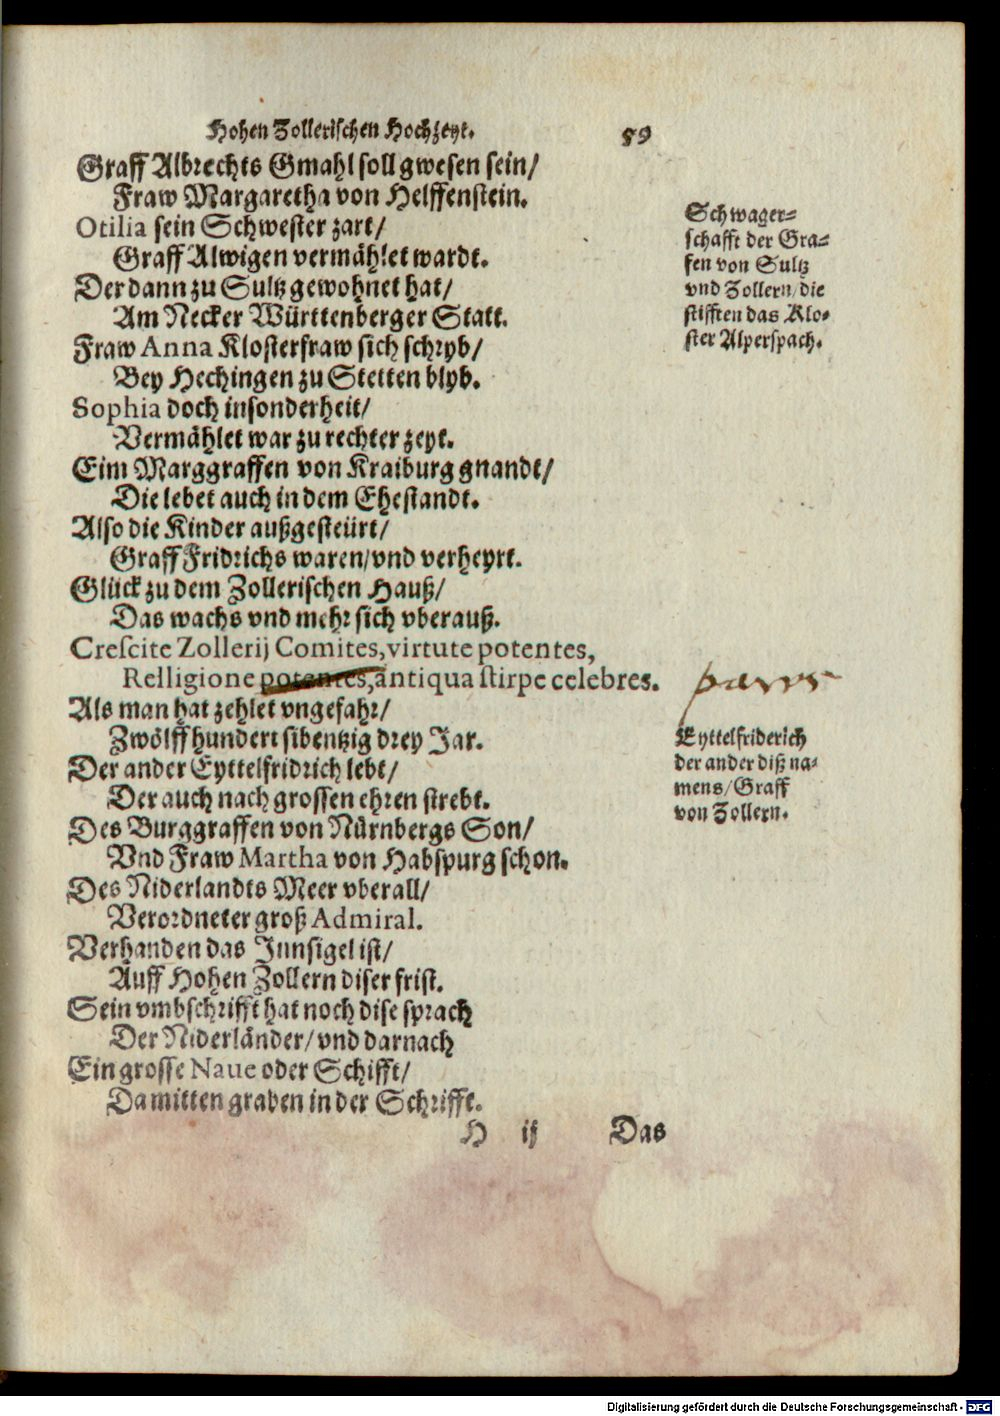 Hohen Zollerischen Hochzeyt. 59
Graff Albrechts Gmahl soll gwesen sein/
Fraw Margaretha von Helffenstein.
Otilia sein Schwester zart/
Graff Alwigen vermählet wardt.
Der dann zu Sultz gewohnet hat/
Am Necker Württenberger Statt.
Fraw Anna Klosterfraw sich schryb/
Bey Hechingen zu Stetten blyb.
Sophia doch insonderheit/
Vermählet war zu rechter zeyt.
Eim Marggraffen von Kraiburg gnandt/
Die lebet auch in dem Ehestandt.
Also die Kinder außgesteürt/
Graff Fridrichs waren/vnd verheyrt.
Glück zu dem Zollerischen Hauß/
Das wachs vnd mehr sich vberauß.
Crescite Zollerij Comites, virtute potentes,
Relligione potentes, antiqua stirpe celebres.
Als man hat zehlet vngefahr/
Zwölff hundert sibentzig drey Jar.
Der ander Eyttelfridrich lebt/
Der auch nach grossen ehren strebt.
Des Burggraffen von Nürnbergs Son/
Vnd Fraw Martha von Habspurg schon.
Des Niderlandts Meer vberall/
Verordneter groß Admiral.
Verhanden das Innsigel ist/
Auff Hohen Zollern diser frist.
Sein vmbschrifft hat noch dise sprach
Der Niderländer/vnd darnach
Ein grosse Naue oder Schifft/
Da mitten graben in der Schrifft.
H ij Das
Schwager-
schafft der Gra-
fen von Sultz
vnd Zollern/die
stifften das Klo-
ster Alperspach.
Eyttelfriderich
der ander diß na-
mens/Graff
von Zollern.
Digitalisierung gefördert durch die Deutsche Forschungsgemeinschaft - DFG